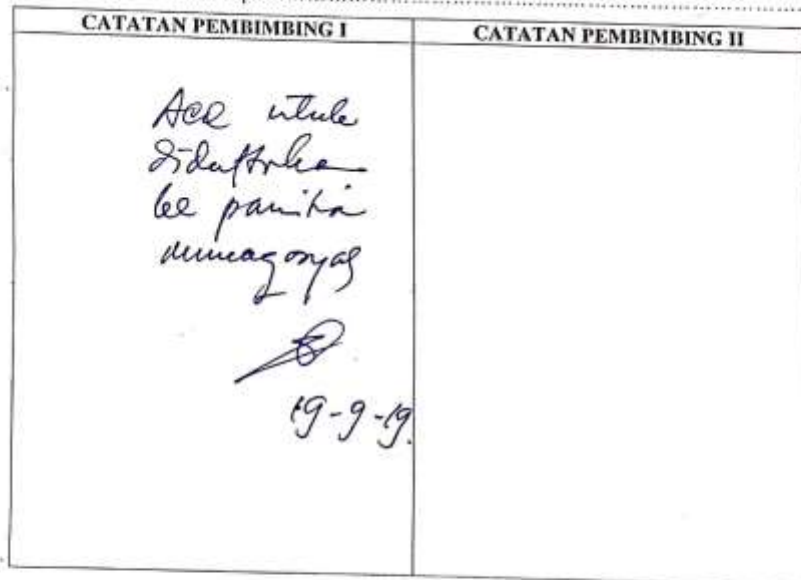 CATATAN PEMBIMBING I
CATATAN PEMBIMBING II
Acc untuk
didaftarkan
ke panitia
19-9-19.